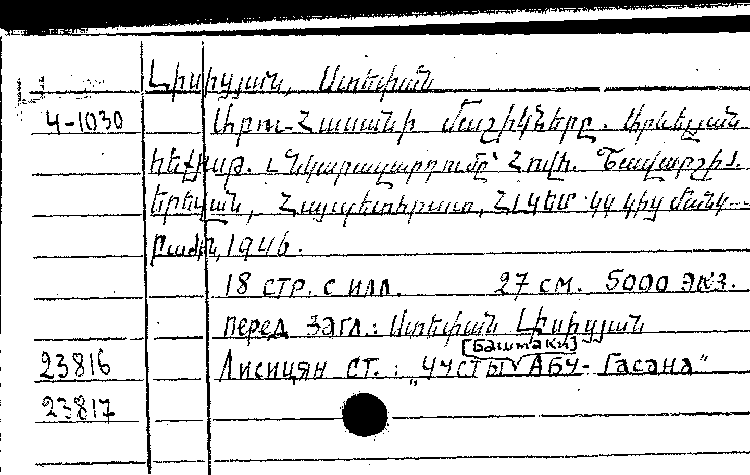 Լիսիցյան, Ստեփան
4-1030 Աբու-Հասանի մաշիկները. Արևելյան
հեքիաթ. Նկարազարդումը՝ Հովհ.
Երևան, Հայպետհրատ, ՀԼԿԵՄ ԿԿ կից մանկ-
բաժին, 1946.
18 стр. с илл. 27 см. 5000 экз.
перед загл.: Ստեփան Լիսիցյան
[Баштаки]
23816 Лисицян Ст.: "Чусты Абу-Гасана"
23817